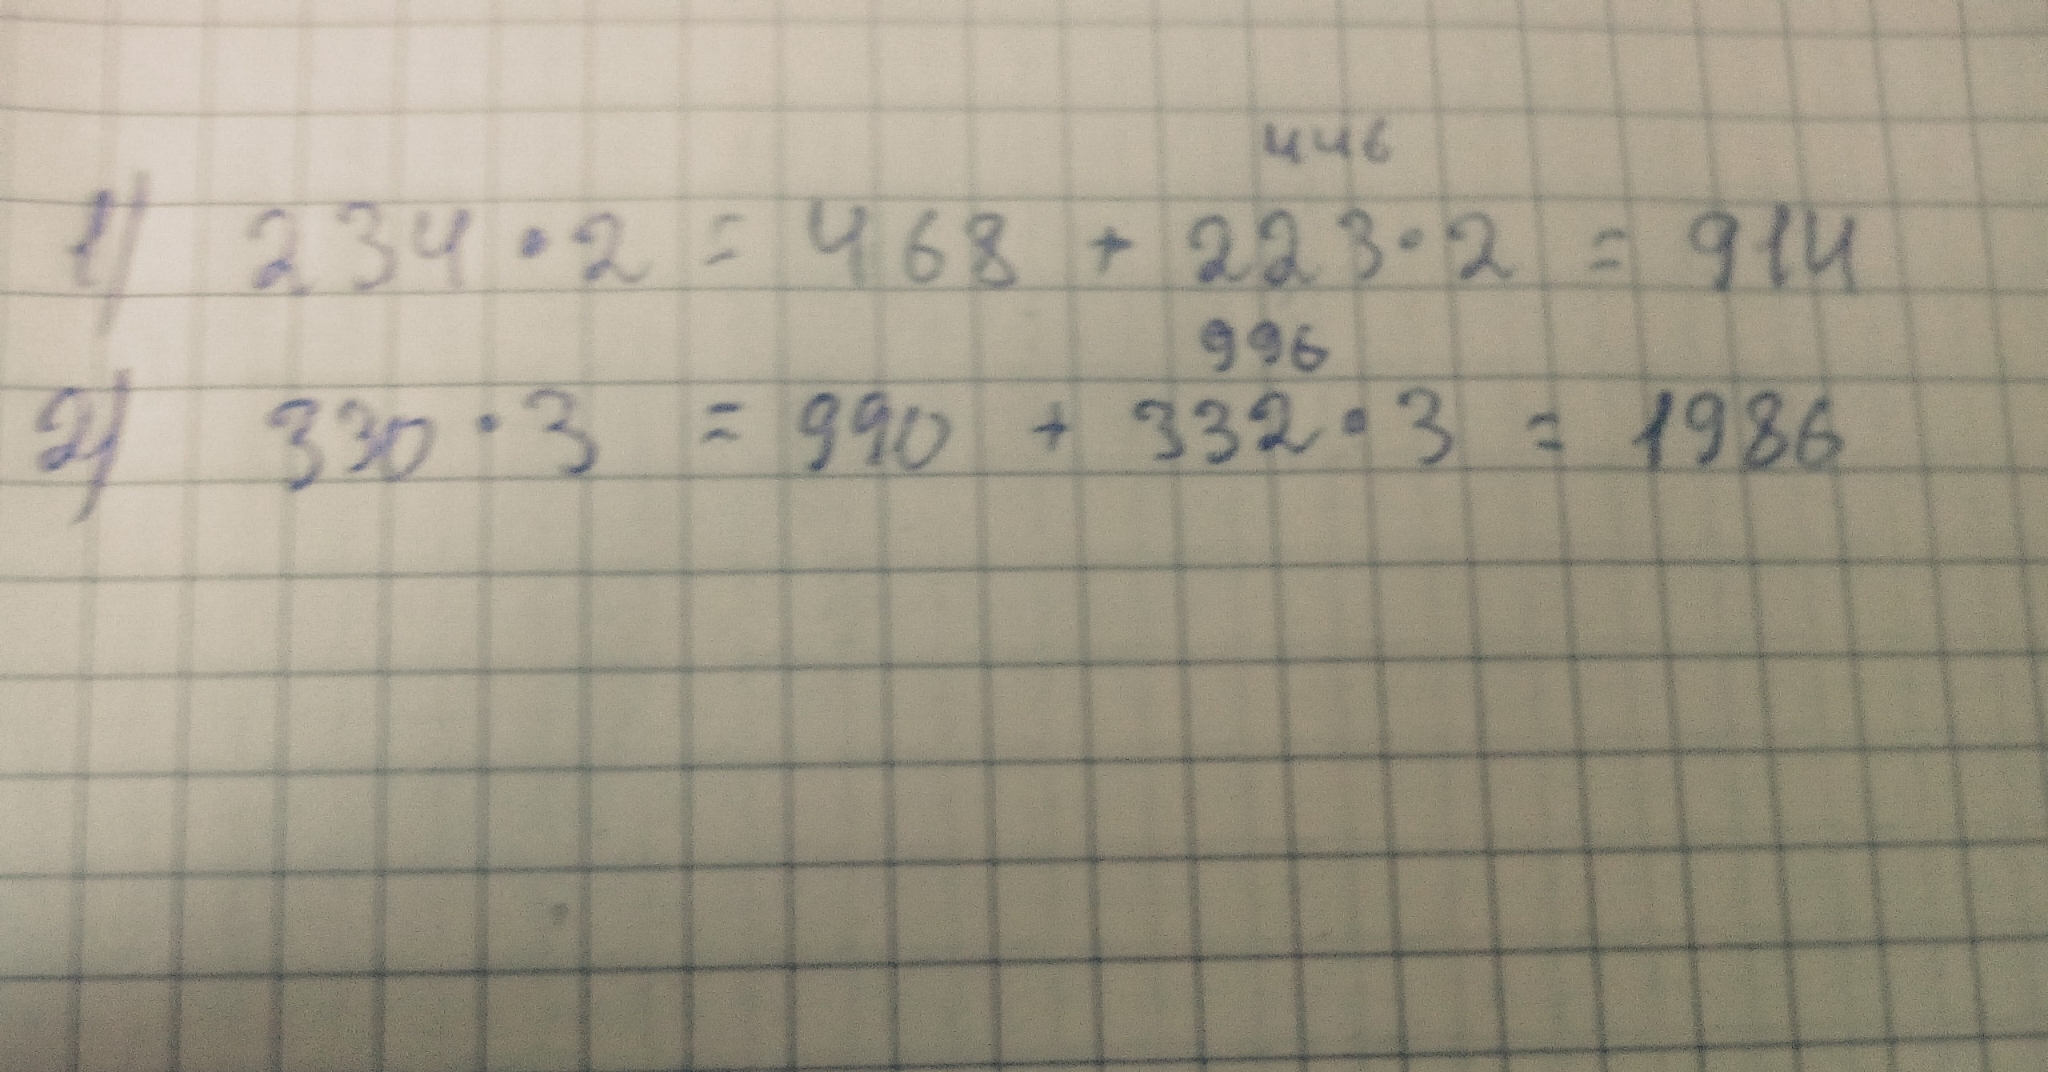 446
1) 234 · 2 = 468 + 223 · 2 = 914
996
2) 330 · 3 = 990 + 332 · 3 = 1986